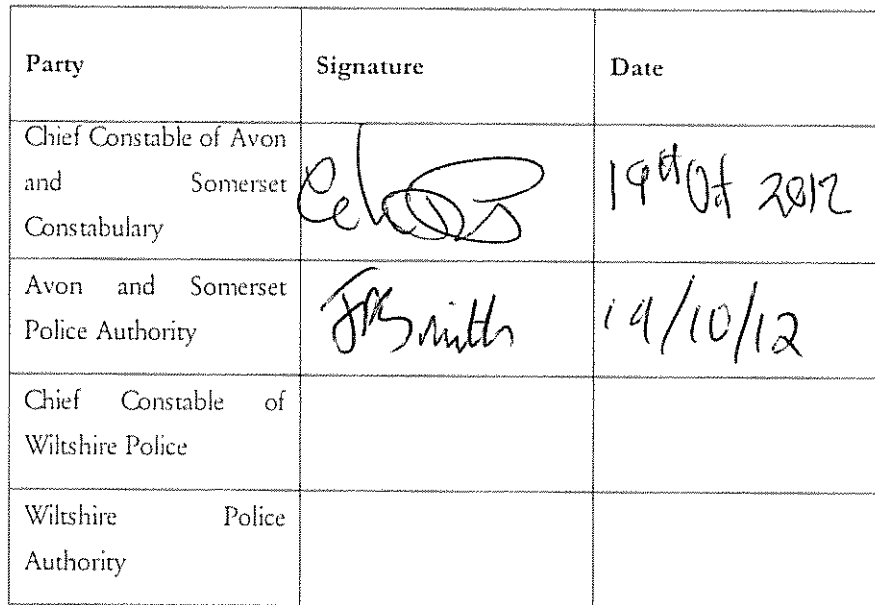 Party Signature Date
Chief Constable of Avon
and Somerset
Constabulary
19th Oct 2012
Avon and Somerset
Police Authority
Smith 19/10/12
Chief Constable of
Wiltshire Police
Wiltshire Police
Authority